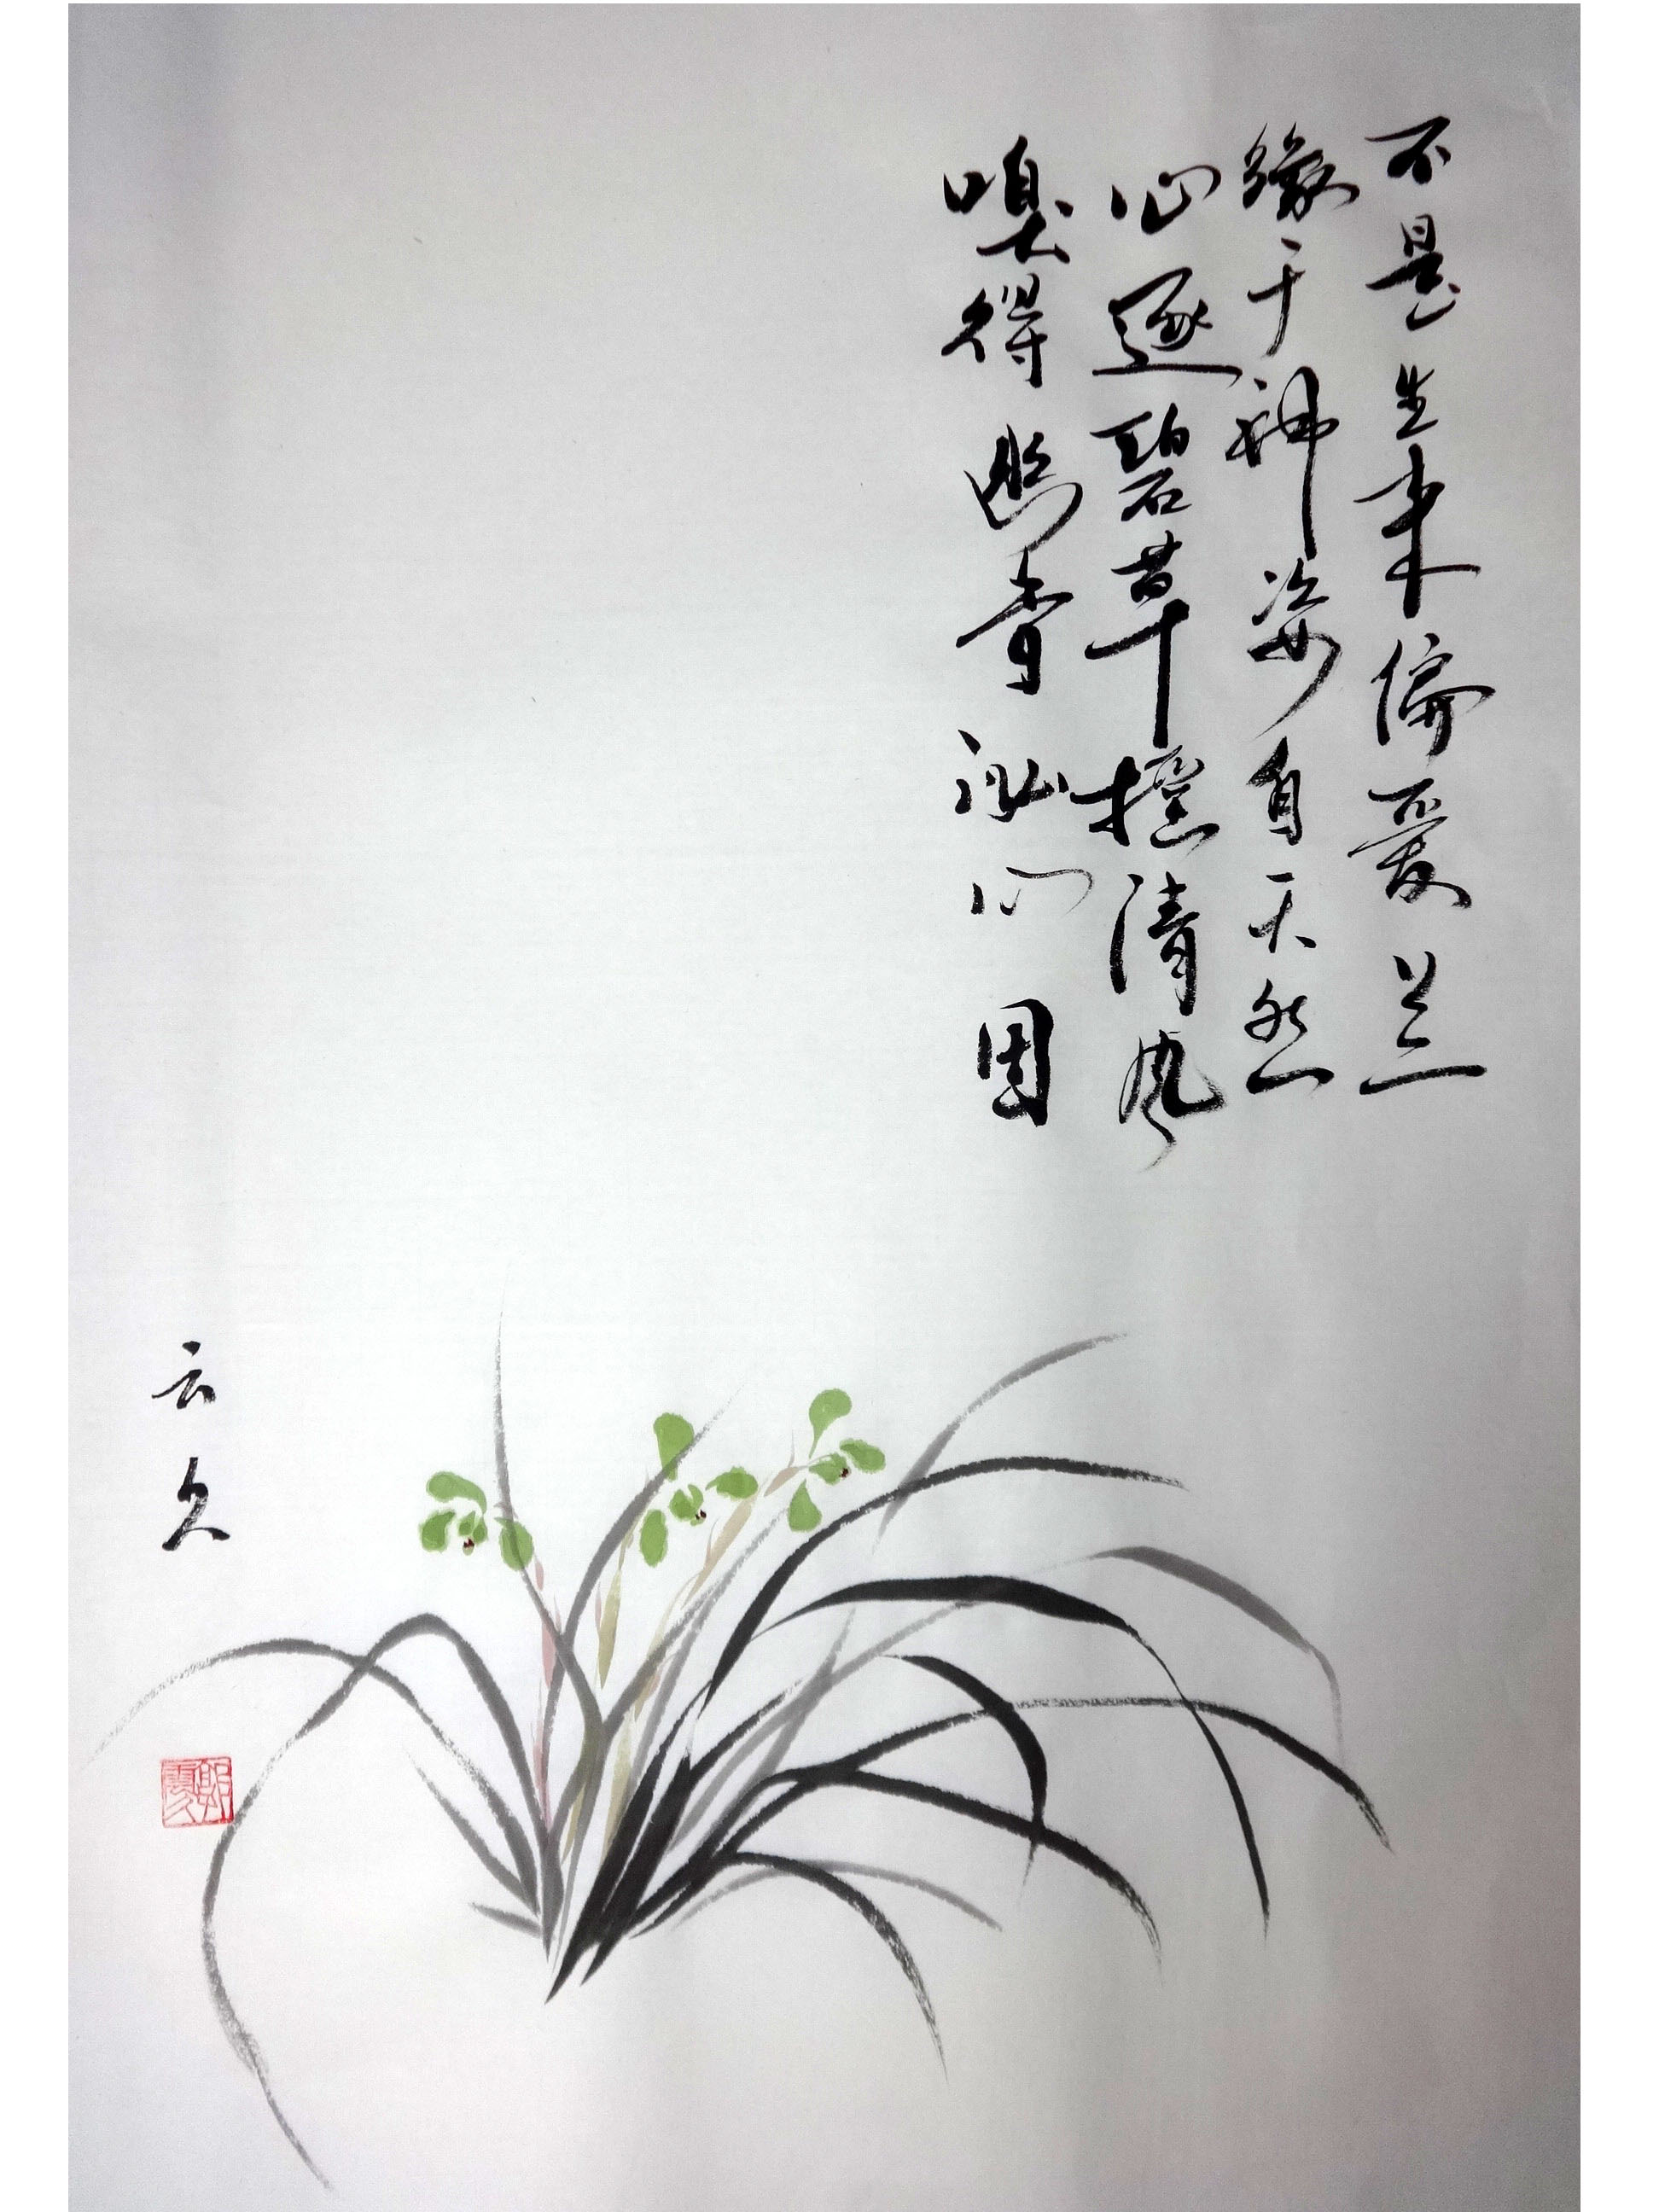 不是生来偏爱兰
缘于神姿自天然
心逐碧草摇清风
嗅得幽香沁心田
云久